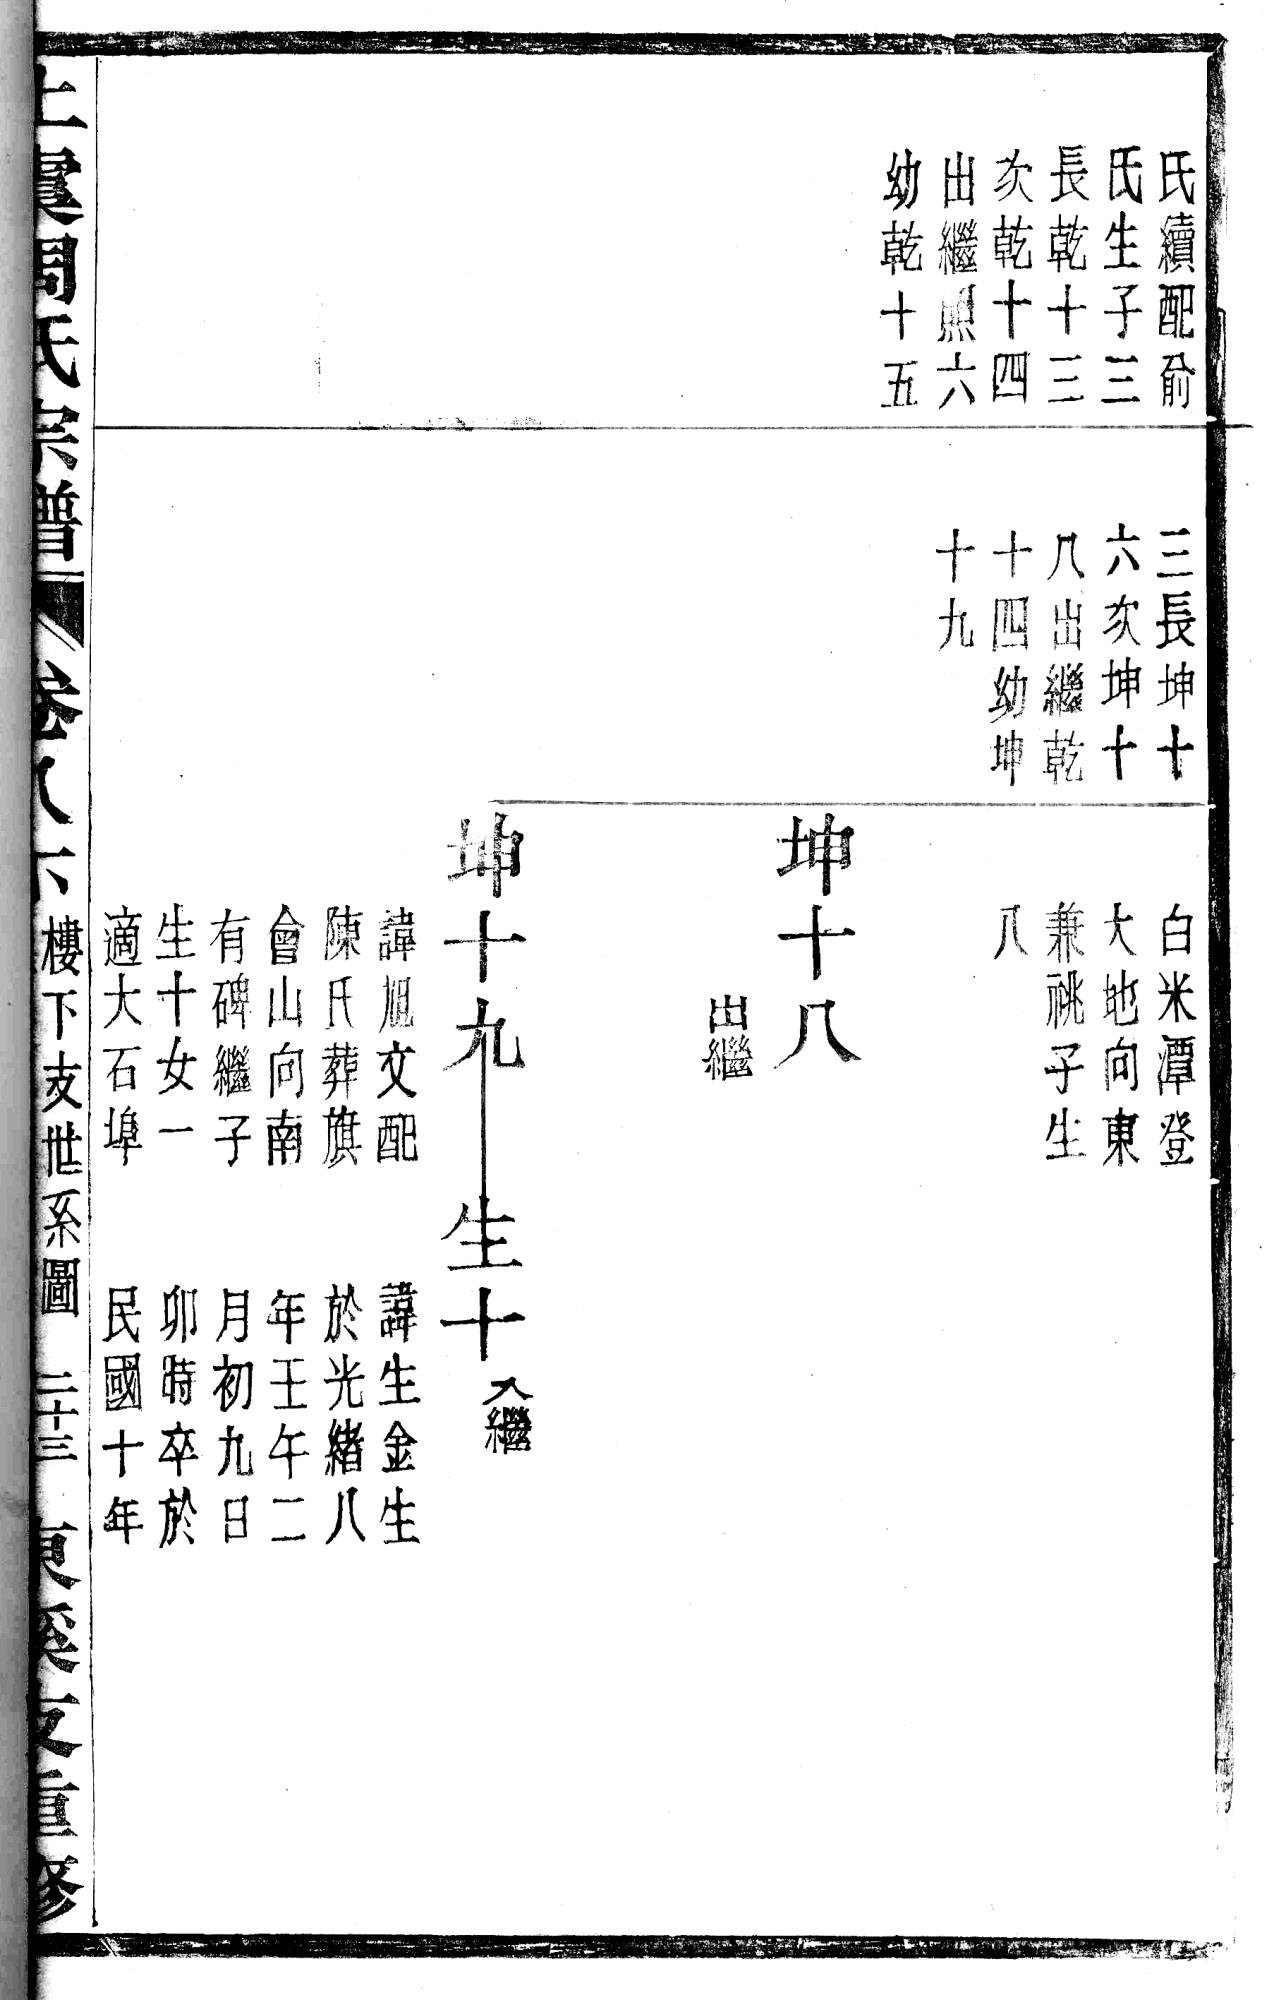 氏續配俞
氏生子三
長乾十三
次乾十四
出繼照六
幼乾十五
三長坤十
六次坤十
八出繼乾
十四幼坤
十九
白米潭登
大地向東
兼祧子生
八
坤十八
出繼
坤十九
生十
入繼
諱旭文配
陳氏葬旗
會山向南
有碑繼子
生十女一
適大石埠
諱生金生
於光緒八
年壬午二
月初九日
卯時卒於
民國十年
上虞周氏宗譜
卷八下
樓下支世系圖
二十三
東溪支重修